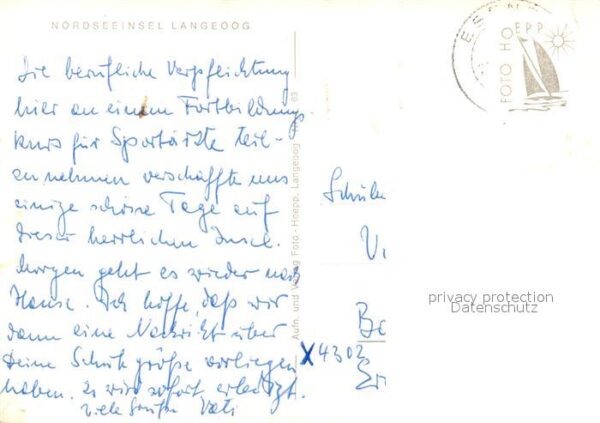 NORDSEEINSEL LANGEOOG
Die berufliche Verpflichtung
hier an einem Fortbildungs
kurs für Sportärzte teil-
zunehmen verschaffte uns
einige schöne Tage auf
dieser herrlichen Insel.
Morgen geht es wieder nach
Hause. Ich hoffe, daß wir
dann eine Nachricht über
Deine Schuhgröße vorliegen
haben. Es wird sofort erledigt.
Viele Grüße Vati
Aufn. und Verlag Foto-Hoepp, Langeoog 63
FOTO HOEPP
Schüle
V
Be
X4302
privacy protection
Datenschutz